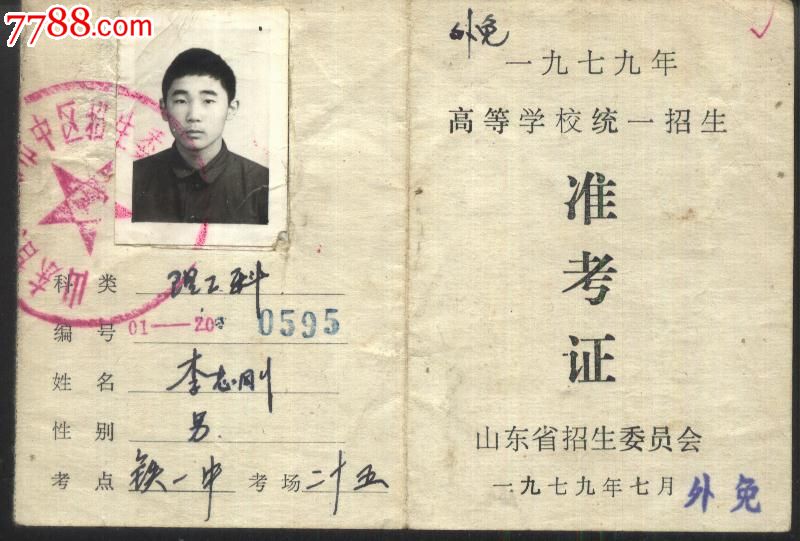 7788.com
中区招生委
山东省
科类 理工科
编号 01—20 0595
姓名 李志刚
性别 男
考点 铁一中 考场 二十五
外免
一九七九年
高等学校统一招生
准考证
山东省招生委员会
一九七九年七月 外免